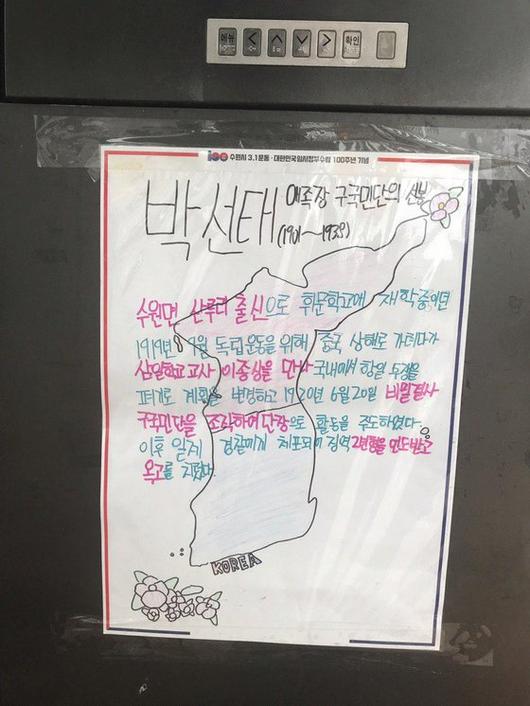 메뉴 확인
100 수원시 3.1운동·대한민국임시정부수립 100주년 기념
박선태 애족장 구국민단의 선봉
(1901~1938)
수원면 산루리 출신으로 휘문학교에 재학중이던
1919년 9월 독립운동을 위해 중국 상해로 가려다가
삼일학교교사 이종상을 만나 국내에서 항일 투쟁을
펴기로 계획을 변경하고 1920년 6월20일 비밀결사
구국민단을 조직하여 단장으로 활동을 주도하였다.
이후 일제 경찰에게 체포되어 징역 2년형을 언도받고
옥고를 치렀다
KOREA